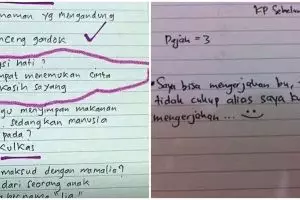 naman yg mengandung
nceng gondok
si hati ?
pat menemukan cinta
kasih sayang
gu menyimpan makanan
sedangkan manusia
pada ?
Kulkas
maksud dengan mamalia ?
dari seorang anak
"lia"
KP Sebelum
Pejah = 3
Saya bisa mengerjakan bu,
tidak cukup alias saya
mengerjakan ...